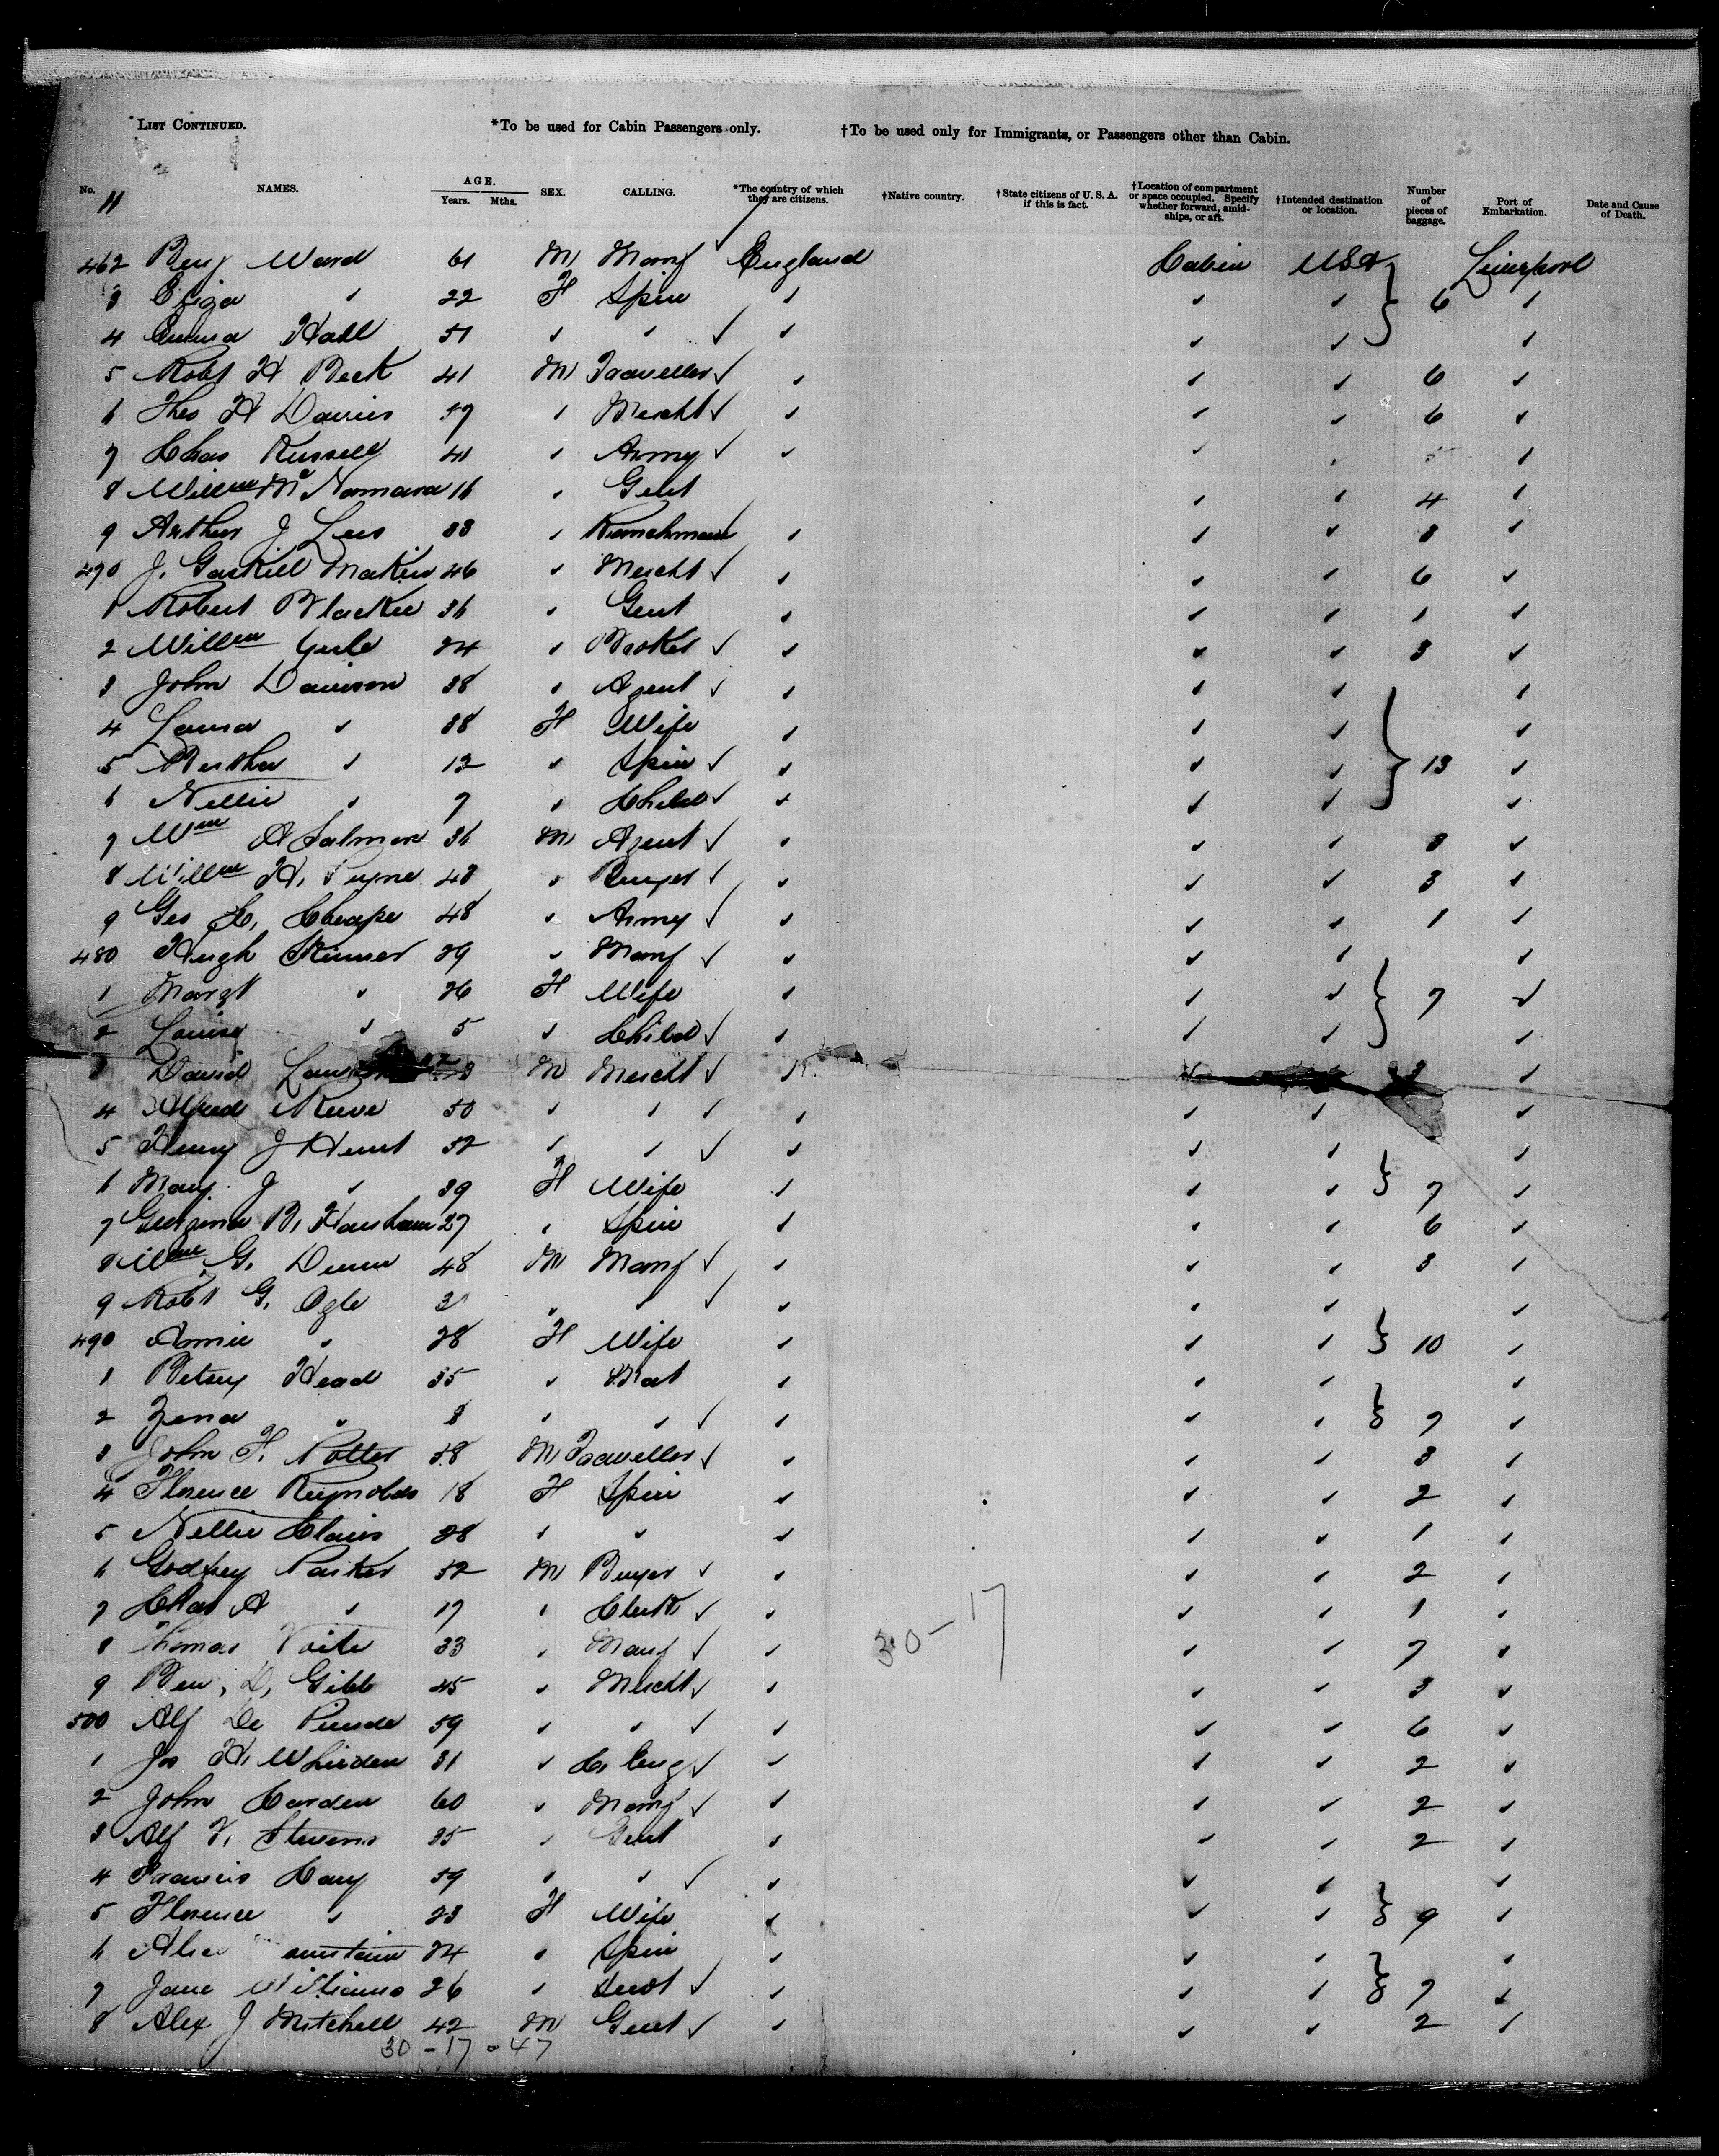 LIST CONTINUED. *To be used for Cabin Passengers only. †To be used only for Immigrants, or Passengers other than Cabin.
No. NAMES. AGE. Years. Mths. SEX. CALLING. *The country of which they are citizens. †Native country. †State citizens of U.S.A. if this is fact. †Location of compartment or space occupied. Specify whether forward, amidships, or aft. †Intended destination or location. Number of pieces of baggage. Port of Embarkation. Date and Cause of Death.
11
462 Benj Ward 61 M Manf England Cabin USA Liverpool
3 Eliza " 22 F Spin " " " 6 "
4 Emma Hall 51 " " " " " "
5 Robt H Beck 41 M Traveller " " " 6 "
6 Theo H Davies 57 " Mercht " " " 6 "
7 Chas Russell 41 " Army " " " "
8 Willm McNamara 16 " Gent " " 4 "
9 Arthur J Lees 33 " Ranchman " " " 3 "
470 J. Gaskill Makin 46 " Mercht " " " 6 "
1 Robert Blackie 36 " Gent " " " 1 "
2 Willm 24 " Broker " " " 3 "
3 John Davison 38 " Agent " " " "
4 Laura " 38 F Wife " " " "
5 Bertha " 12 " Spin " " " 13 "
6 Nellie " 7 " Child " " " "
7 Wm A Salmon 36 M Agent " " " 3 "
8 Willm H. Payne 43 " Buyer " " " 3 "
9 Geo C. Cheape 48 " Army " " " 1 "
480 Hugh Skinner 29 " Manf " " " "
1 Margt " 26 F Wife " " " 7 "
2 Louisa " 5 " Child " " " "
3 David M Mercht " " "
4 Alfred Reeve 50 " " " " " "
5 Henry J Hunt 52 " " " " " "
6 Mary J " 39 F Wife " " " 7 "
7 Georgina B. 27 " Spin " " " 6 "
8 Wm G. Dunn 48 M Manf " " " 3 "
9 Robt G. Ogle 31 " " " " " "
490 Annie " 28 F Wife " " " 10 "
1 Betsey Head 35 " " " " "
2 Zena " 8 " " " " " 7 "
3 John F. Potter 58 M Traveller " " " 3 "
4 Florence Reynolds 18 F Spin " " " 2 "
5 Nellie Claris 28 " " " " " 1 "
6 Godfrey Parker 52 M Buyer " " " 2 "
7 Chas A " 17 " Clerk " " " 1 "
8 Thomas Voile 33 " Manf " 30-17 " " 7 "
9 Ben, D, Gibb 45 " Mercht " " " 3 "
500 Alf De 59 " " " " " 6 "
1 Jos H. Whinden 31 " C. Eng " " " 2 "
2 John Carden 60 " Manf " " " 2 "
3 Alf F. Stevens 35 " Gent " " " 2 "
4 Francis Cary 59 " " " " " "
5 Florence " 23 F Wife " " " 9 "
6 Alice 24 " Spin " " " "
7 Jane Williams 26 " Servt " " " 7 "
8 Alex J Mitchell 42 M Gent " " " 2 "
30-17-47